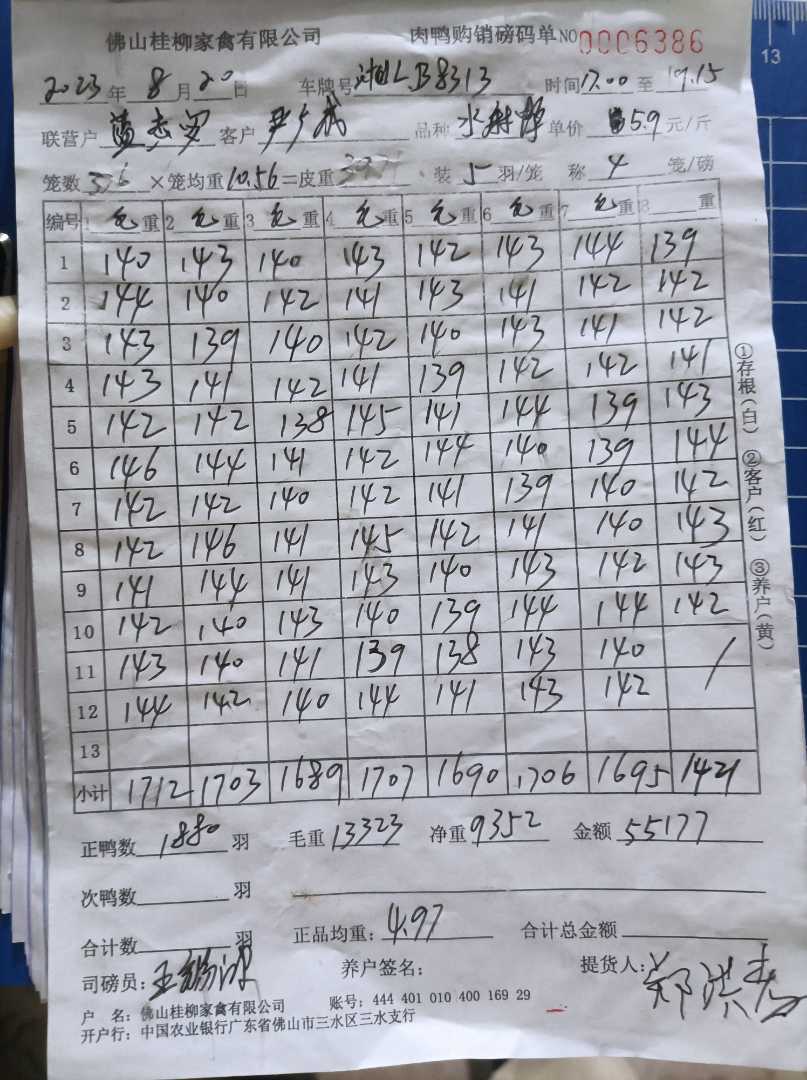 佛山桂柳家禽有限公司 肉鸭购销磅码单 NO 0006386
2023年 8月 20日 车牌号 湘L.B8313 时间 17.00 至 19.15
联营户 客户 品种 单价 5.9 元/斤
笼数 376 ×笼均重 10.56 =皮重 装 5 羽/笼 称 4 笼/磅
编号 1 毛重 2 毛重 3 毛重 4 毛重 5 毛重 6 毛重 7 毛重 8 重
1 140 143 140 143 142 143 144 139
2 144 140 142 141 143 141 142 142
3 143 139 140 142 140 143 141 142
4 143 141 142 141 139 142 142 141
5 142 142 138 145 141 144 139 143
6 146 144 141 142 144 140 139 144
7 142 142 140 142 141 139 140 142
8 142 146 141 145 142 141 140 143
9 141 144 141 143 140 143 142 143
10 142 140 143 140 139 144 144 142
11 143 140 141 139 138 143 140 /
12 144 142 140 144 141 143 142
13
小计 1712 1703 1689 1707 1690 1706 1695 1421
①存根(白) ②客户(红) ③养户(黄)
正鸭数 1880 羽 毛重 13323 净重 9352 金额 55177
次鸭数 羽
合计数 羽 正品均重: 4.97 合计总金额
司磅员: 养户签名: 提货人:
户 名: 佛山桂柳家禽有限公司 账号: 444 401 010 400 169 29
开户行: 中国农业银行广东省佛山市三水区三水支行
13